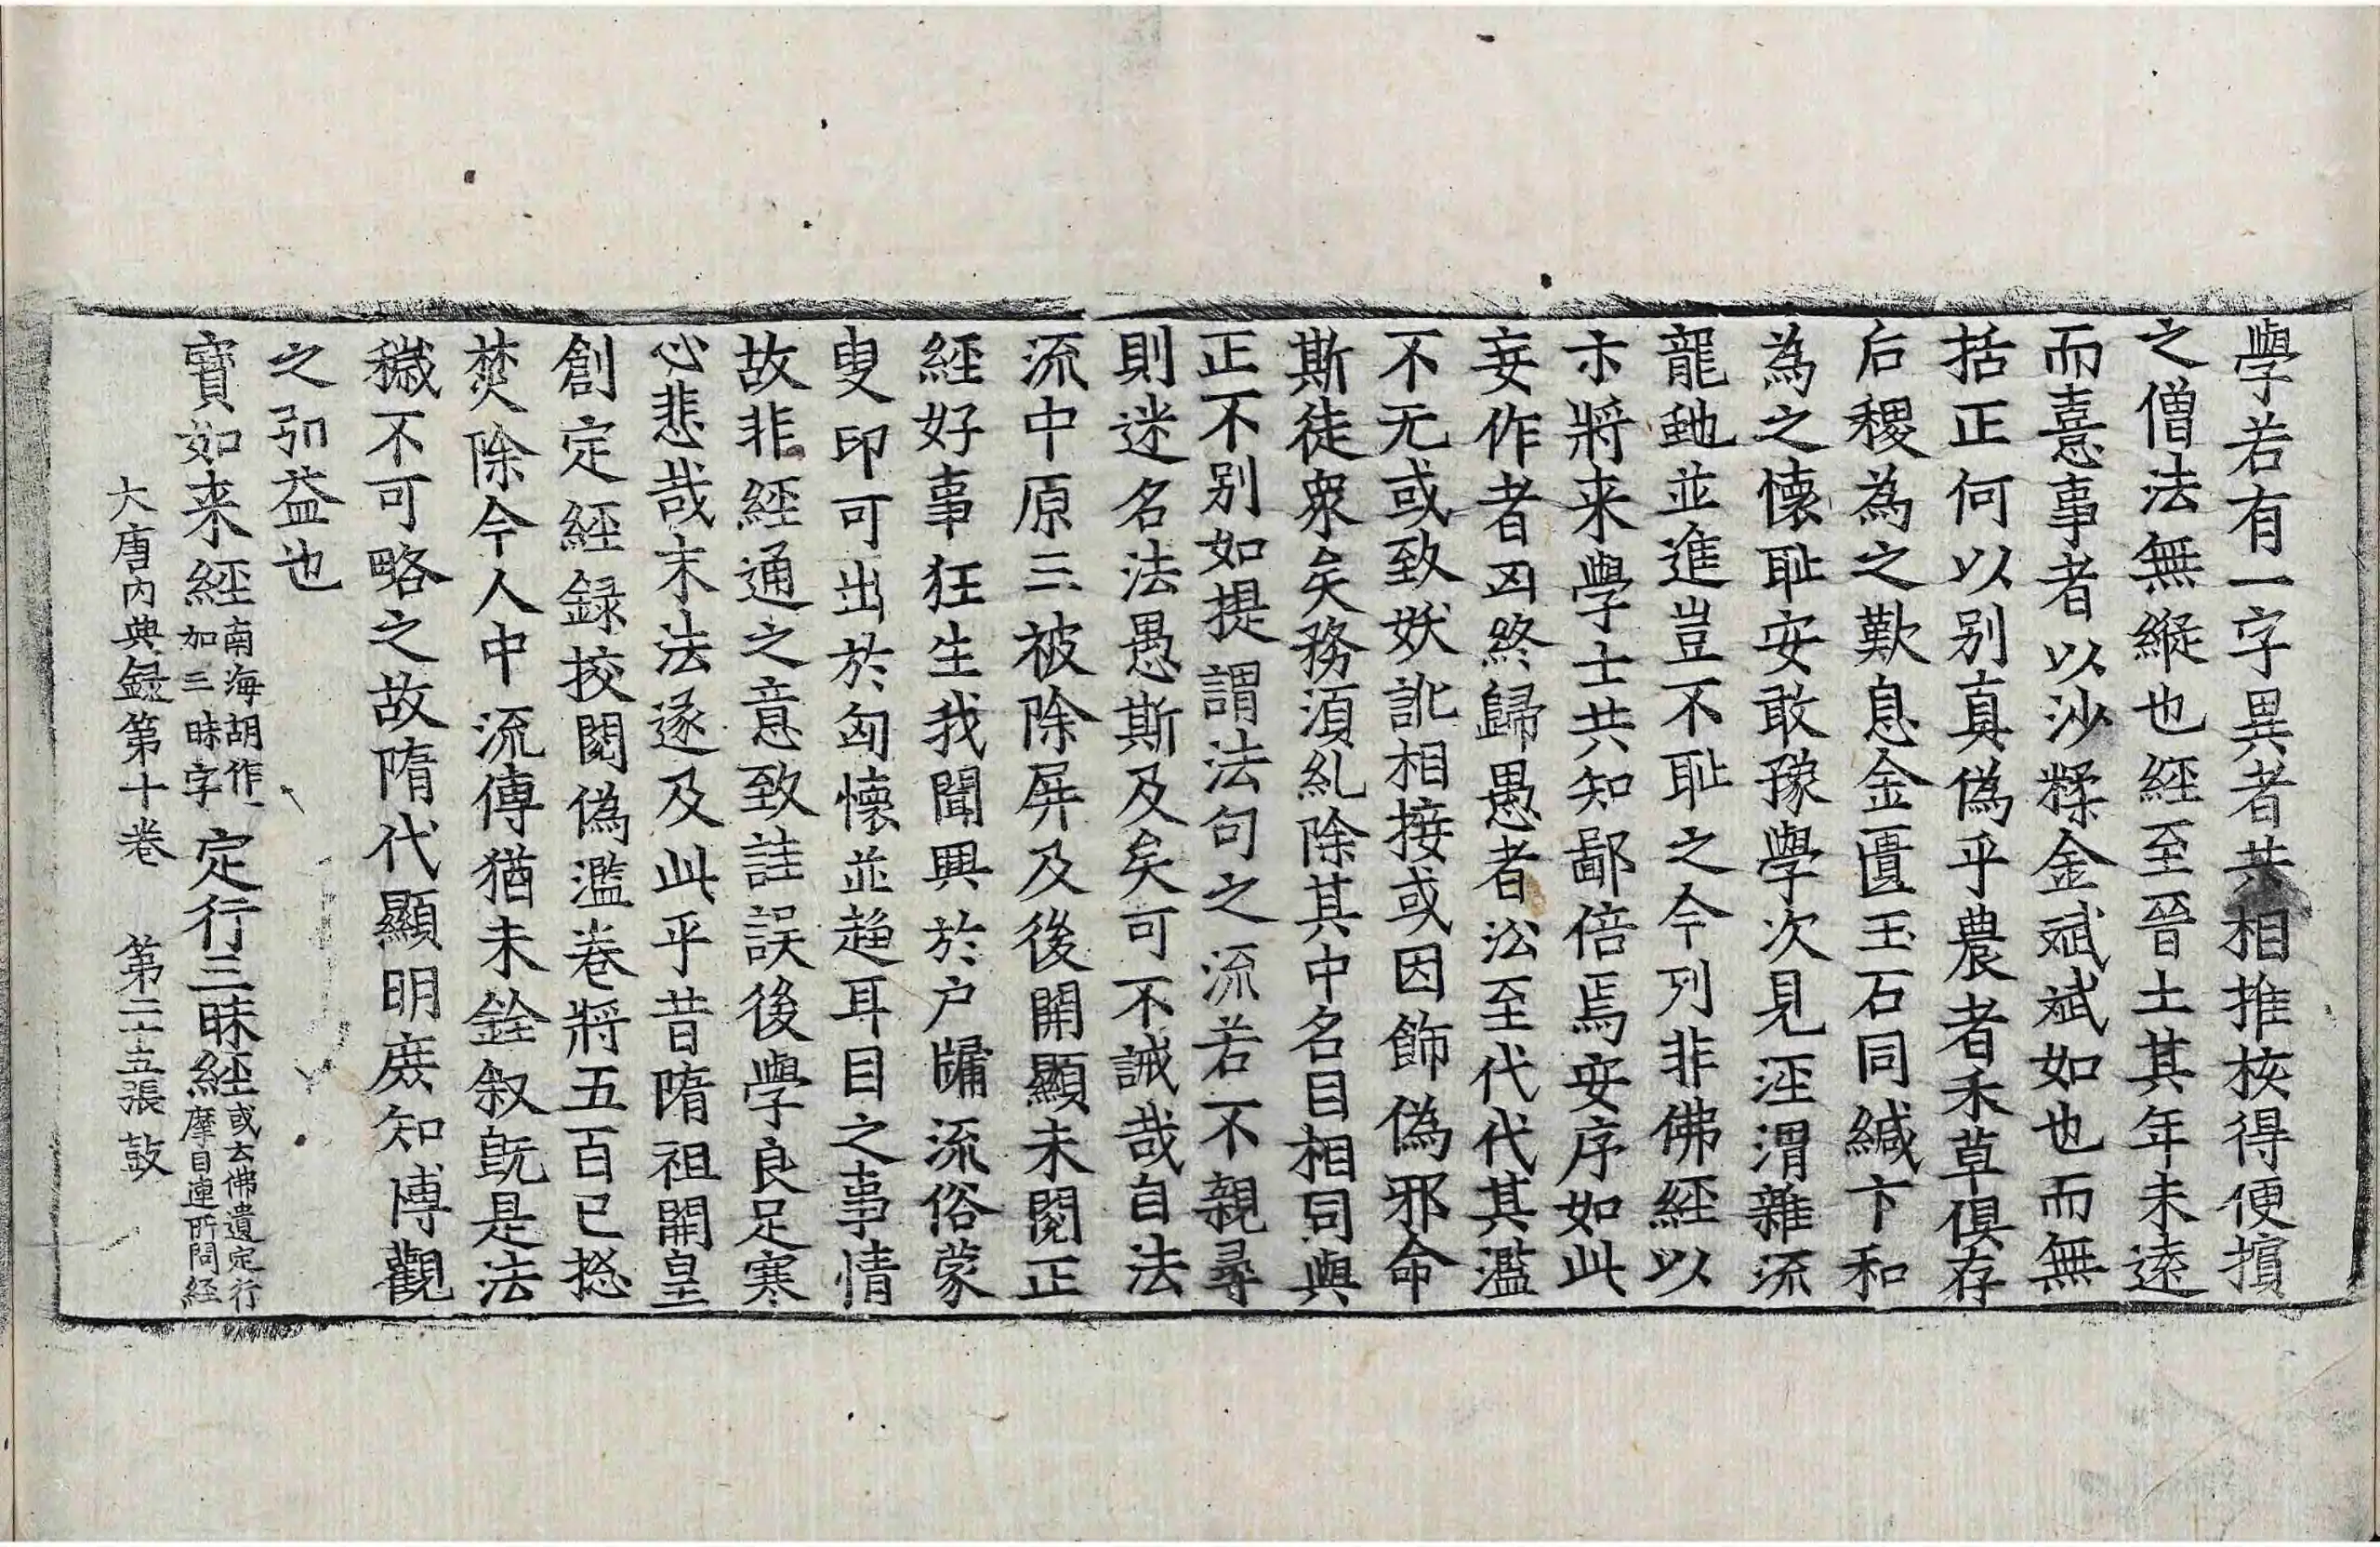 學若有一字異者共相推挍得便擯
之僧法無縱也經至晉土其年未遠
而憙事者以沙糅金斌斌如也而無
括正何以别真偽乎農者禾草俱存
后稷為之歎息金匱玉石同緘卞和
為之懷耻安敢豫學次見涇渭雜流
龍虵並進豈不耻之今列非佛經以
示將来學士共知鄙倍焉安序如此
妄作者凶終歸愚者訟至代代其濫
不无或致妖訛相接或因飾偽邪命
斯徒衆矣務湏糺除其中名目相同與
正不別如提謂法句之流若不親尋
則迷名法愚斯及矣可不誡哉自法
流中原三被除屏及後開顯未閱正
經好事狂生我聞興於户牖流俗蒙
叟印可出於匈懷並趍耳目之事情
故非經通之意致詿誤後學良足寒
心悲哉末法遂及此乎昔隋祖開皇
創定經録挍閱偽濫卷將五百已揔
焚除今人中流傳猶未銓叙旣是法
穢不可略之故隋代顯明庻知博觀
之弘益也
寶如来經南海胡作、加三昧字 定行三昧經或云佛遺定行摩目連所問経
大唐内典録第十卷 第二十五張 鼓